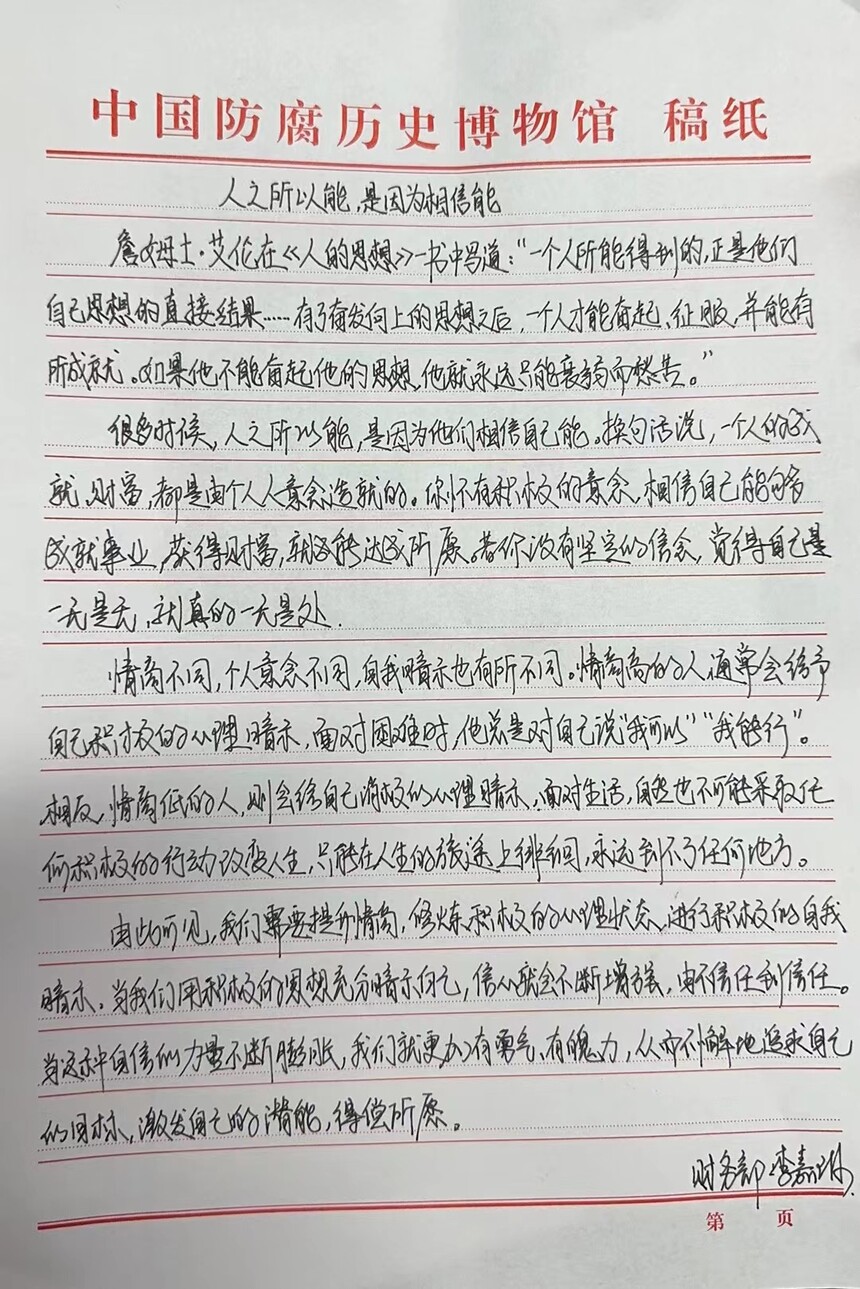 中国防腐历史博物馆 稿纸
人之所以能,是因为相信能
詹姆士·艾伦在《人的思想》一书中写道:“一个人所能得到的,正是他们
自己思想的直接结果……有了奋发向上的思想之后,一个人才能奋起、征服、并能有
所成就。如果他不能奋起他的思想,他就永远只能衰弱而愁苦。”
很多时候,人之所以能,是因为他们相信自己能。换句话说,一个人的成
就、财富,都是由个人意念造就的。你怀有积极的意念,相信自己能够
成就事业,获得财富,就能达成所愿。若你没有坚定的信念,觉得自己是
一无是无,就真的一无是处.
情商不同,个人意念不同,自我暗示也有所不同。情商高的人通常会给予
自己积极的心理暗示,面对困难时,他总是对自己说“我可以”“我能行”。
相反,情商低的人,则会给自己消极的心理暗示,面对生活,自然也不可能采取任
何积极的行动改变人生,只能在人生的旅途上徘徊,永远到不了任何地方。
由此可见,我们需要提升情商,修炼积极的心理状态,进行积极的自我
暗示。当我们用积极的思想充分暗示自己,信心就会不断增强,由不信任到信任。
当这种自信的力量不断膨胀,我们就更加有勇气、有魄力,从而不懈地追求自己
的目标,激发自己的潜能,得偿所愿。
财务部 李嘉琳
第 页